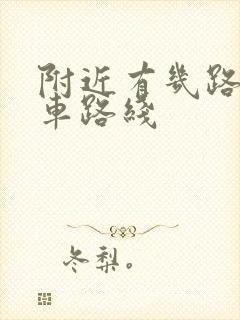 附近有幾路
車路綫
冬梨。